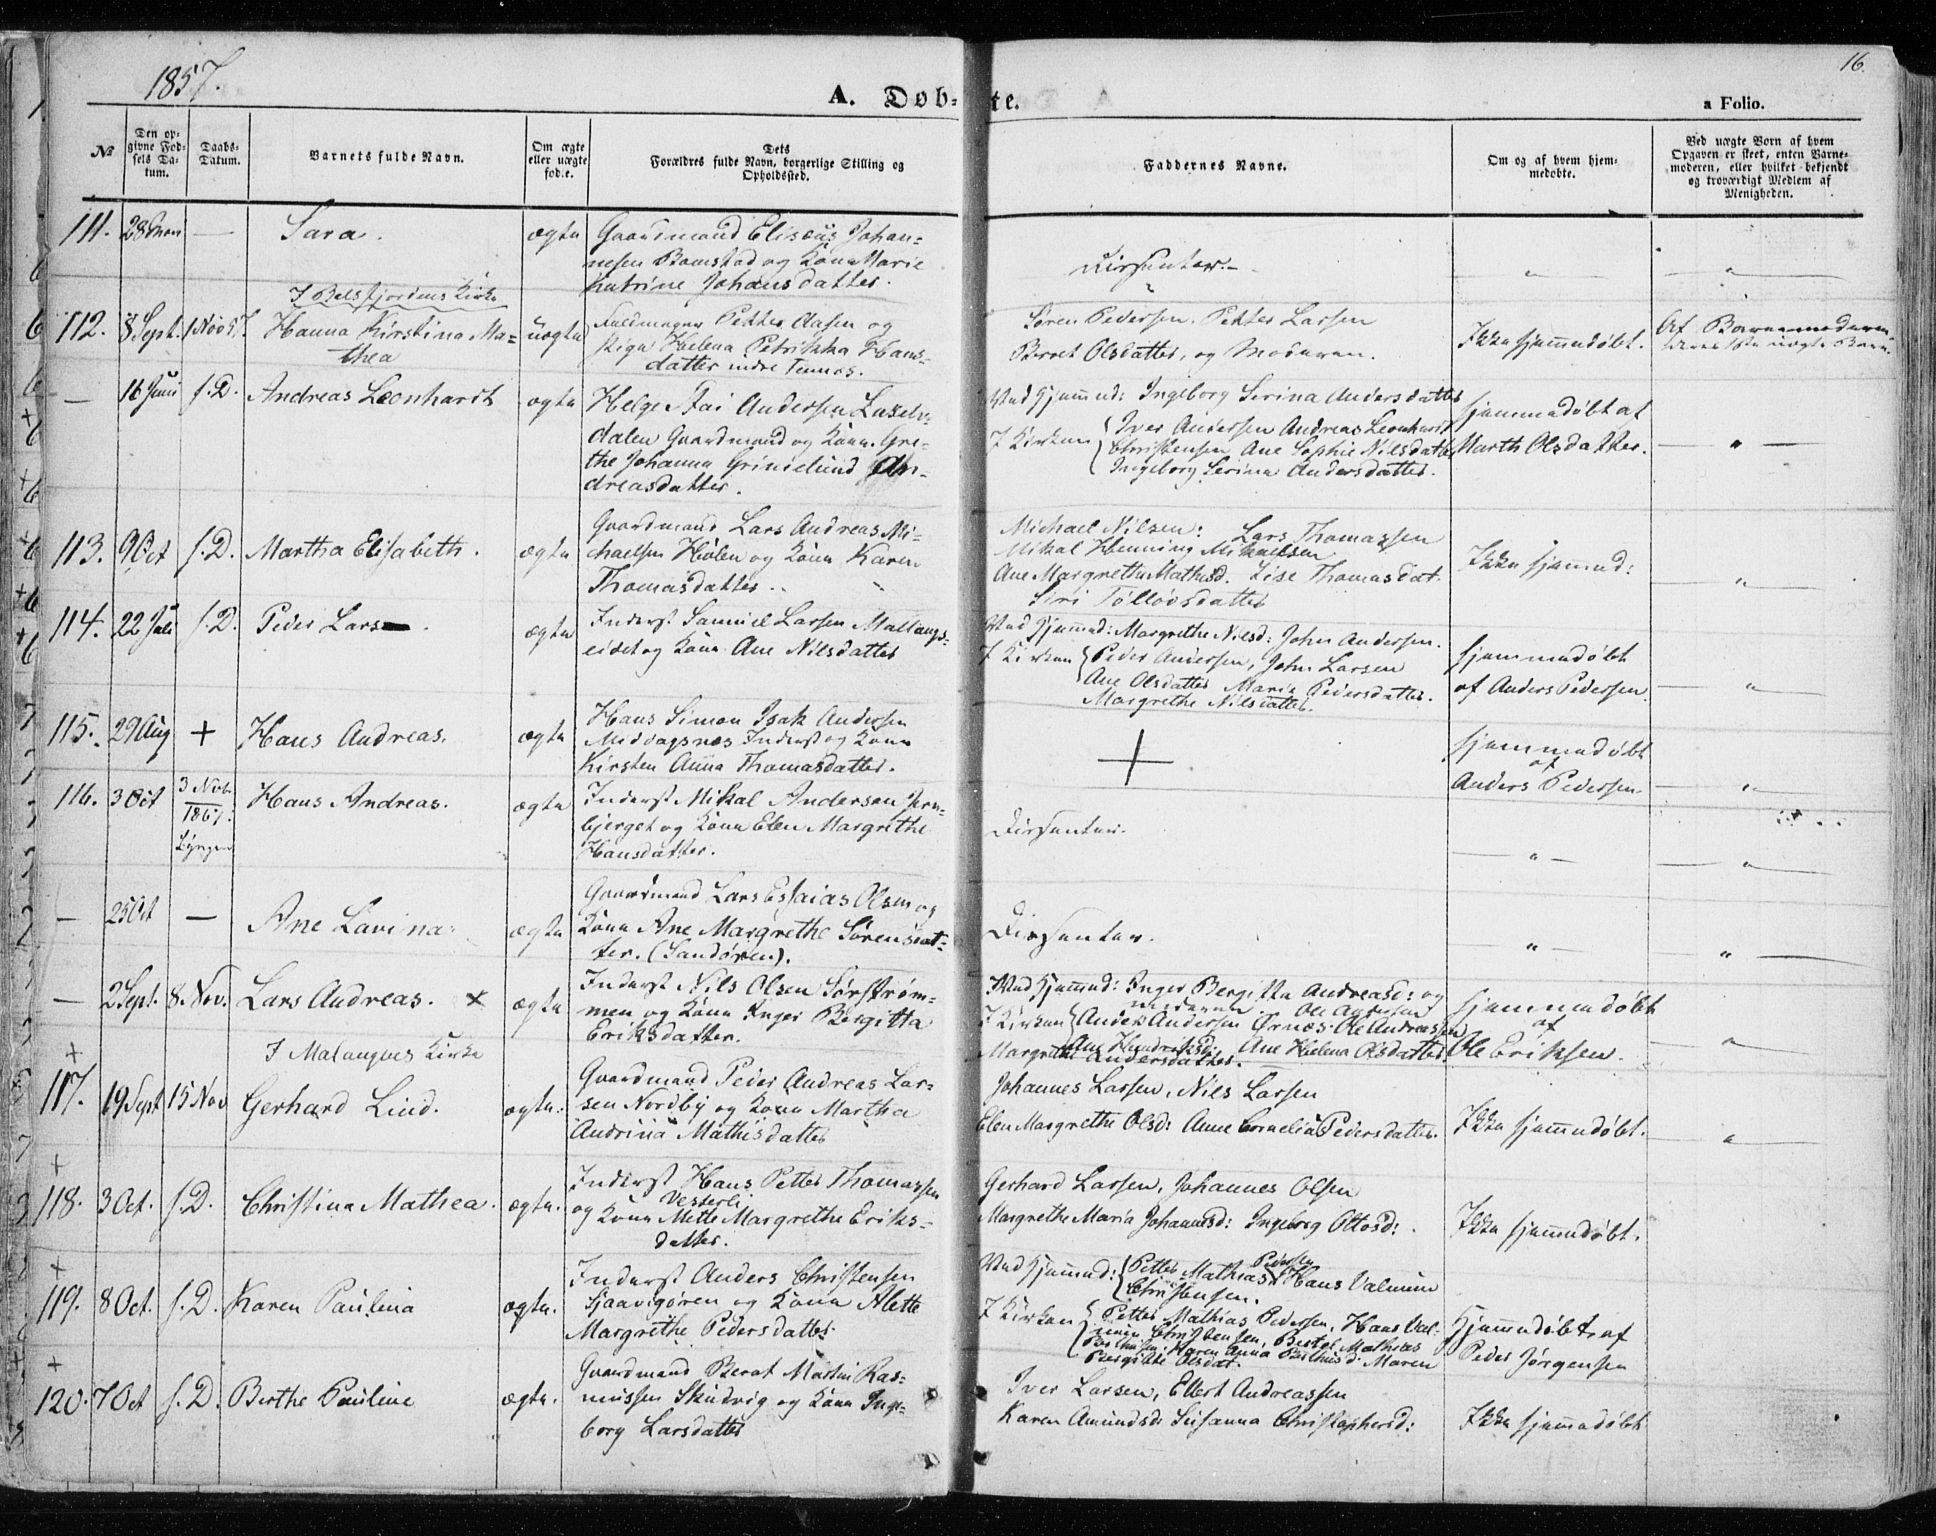 1857.
16.
A. Døb-te.
a Folio.
№
Den op-
givne Fød-
sels Da-
tum.
Daabs-
Datum.
Barnets fulde Navn.
Om ægte
eller uægte
fød.e.
Dets
Forældres fulde Navn, borgerlige Stilling og
Opholdssted.
Faddernes Navne.
Om og af hvem hjem-
medøbte.
Ved uægte Børn af hvem
Opgaven er skeet, enten Barne-
moderen, eller hvilket bekjendt
og troværdigt Medlem af
Menigheden.
111. 28 — Sara. ægte Gaardmand Elisæus Johan-
nesen Bomstad og Kone Marie
Katrine Johansdatter.
Dissenter. — " "
I Balsfjordens Kirke
112. 8 Sept. 1 Nov 57. Hanna Kirstina Ma-
thea
uægte Petter Aasen og
Pige Helena Petrikka Hans-
datter indre Tennes.
Søren Pedersen. Petter Larsen
Berret Olsdatter, og Moderen.
Ikke hjemmedøbt.
Af Barnemoderen
— 16 Juni s. D. Andreas Leonhardt ægte Helge Fai Andersen Laxelv-
dalen Gaardmand og Kone Gre-
the Johanna Grinelund An-
dreasdatter.
Ved Hjemmed: Ingeborg Serina Andersdatter
I Kirken Iver Andersen Andreas Leonhardt
Christensen Ane Sophie Nilsdatter
Ingeborg Serina Andersdatter.
hjemmedøbt af
Marth Olsdatter. — " —
113. 9 Oct s. D. Martha Elisabeth. ægte Gaardmand Lars Andreas Mi-
chaelsen Hølen og Kone Karen
Thomasdatter.
Michael Nilsen: Lars Thomassen
Mikal Henning Mikaelsen
Ane Margrethe Mathisd. Lise Thomasdat.
Siri Tolløvsdatter
Ikke hjemmed: — " —
114. 22 Juli s. D. Peder Lars ægte Inderst Samuel Larsen Mallangs-
eidet og Kone Ane Nilsdatter
Ved Hjemmed: Margrethe Nilsd: John Andersen.
I Kirken Peder Andersen, John Larsen
Ane Olsdatter Marie Pedersdatter.
Margrethe Nilsdatter.
hjemmedøbt
af Anders Pedersen — " —
115. 29 Aug + Hans Andreas. ægte Hans Simon Isak Andersen
Middagsnes Inderst og Kone
Kirsten Anna Thomasdatter.
+
hjemmedøbt
af
Anders Pedersen. — " —
116. 3 Oct 3 Nov.
1867.
Lyngen
Hans Andreas. ægte Inderst Mikal Andersen Jern-
bjerget og Kone Elen Margrethe
Hansdatter.
Dissenter. — " — — " —
— 25 Oct — Ane Lavina. ægte Gaardmand Lars Essaias Olsen og
Kone Ane Margrethe Sørensdat-
ter. (Sandøren).
Dissenter. — " — — " —
— 2 Sept. 8. Nov. Lars Andreas. x ægte Inderst Nils Olsen Sørstrøm-
men og Kone Inger Bergitta
Eriksdatter.
Ved Hjemmed: Inger Bergitta Andreasd: og
Moderen
I Kirken Anders Andersen Ørnæs. Ole Andreassen
Ane Hendriksd: Ane Helena Olsdatter
Margrethe Andersdatter.
hjemmedøbt
af
Ole Eriksen. — " —
I Malangens Kirke
+
117. 19 Sept 15 Nov Gerhard Lind. ægte. Gaardmand Peder Andreas Lar-
sen Nordby og Kone Martha
Andrina Mathisdatter
Johannes Larsen, Nils Larsen
Elen Margrethe Olsd: Anne Cornelia Pedersdatter.
Ikke hjemmedøbt. — " —
+
118. 3 Oct. s. D. Christina Mathea. ægte. Inderst Hans Petter Thomassen
Vesterli
og Kone Mette Margrethe Eriks-
datter.
Gerhard Larsen, Johannes Olsen
Margrethe Maria Johannesd: Ingeborg Ottosd:.
Ikke hjemmedøbt.
+
119. 8 Oct. s. D. Karen Paulina ægte. Inderst Anders Christensen
Sjaavigøren og Kone Alette
Margrethe Pedersdatter.
Ved Hjemmed: Petter Mathias Pedersen Hans Valmun
Christensen.
I Kirken Petter Mathias Pedersen, Hans Val-
mun Christensen, Bertel Mathias
Berthusen. Karen Anna Berthusd. Maren
Bergitte Olsdat.
Hjemmedøbt af
Peder Jørgensen
+
120. 7 Oct s. D. Berthe Pauline ægte. Gaardmand Berat Martin Ras-
mussen Skudvig og Kone Inge-
borg Larsdatter
Iver Larsen, Ellert Andreassen
Karen Amundsd: Susanna Christophersd:
Ikke hjemmedøbt